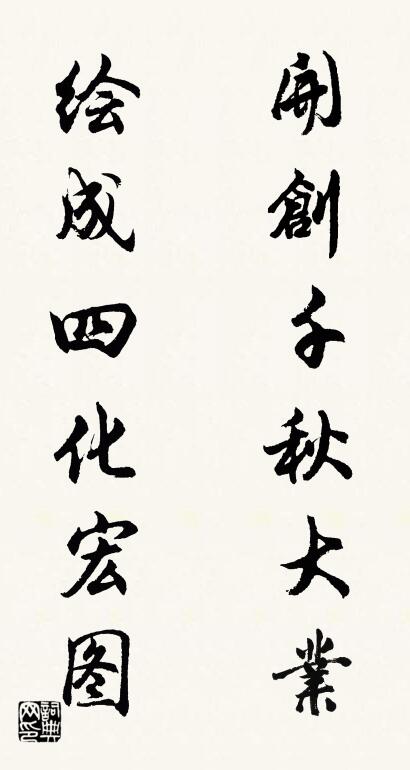 開創千秋大業
绘成四化宏图
詞典
网印